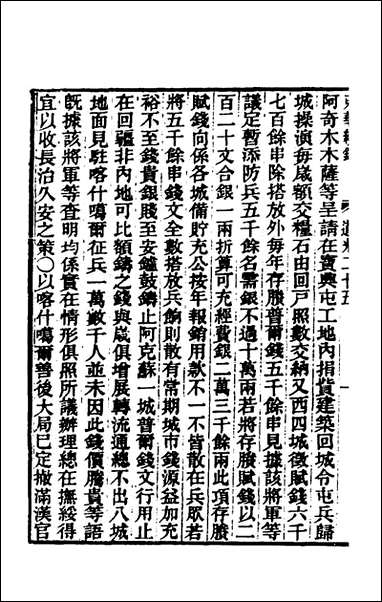 阿奇木木薩等呈請在寶興屯工地內捐貲建築回城令屯兵歸
城操演每歲額交糧石由回戶照數交納又西四城徵賦錢六千
七百餘串除搭放外每年存賸普爾錢五千餘串見據該將軍等
議定暫添防兵五千餘名需銀不過十萬兩若將存賸賦錢以二
百二十文合銀一兩折算可充經費銀二萬三千餘兩此項存賸
賦錢向係各城備貯充公按年報銷用款不一不皆散在兵眾若
將五千餘串錢文全數搭放兵餉則散有常期城市錢源益加充
裕不至錢貴銀賤至安鑪鼓鑄止阿克蘇一城普爾錢文行用止
在回疆非內地可比額鑄之錢與歲俱增展轉流通總不出八城
地面見駐喀什噶爾征兵一萬數千人並未因此錢價騰貴等語
旣據該將軍等查明均係實在情形俱照所議辦理總在撫綏得
宜以收長治久安之策〇以喀什噶爾善後大局已定撤滿漢官